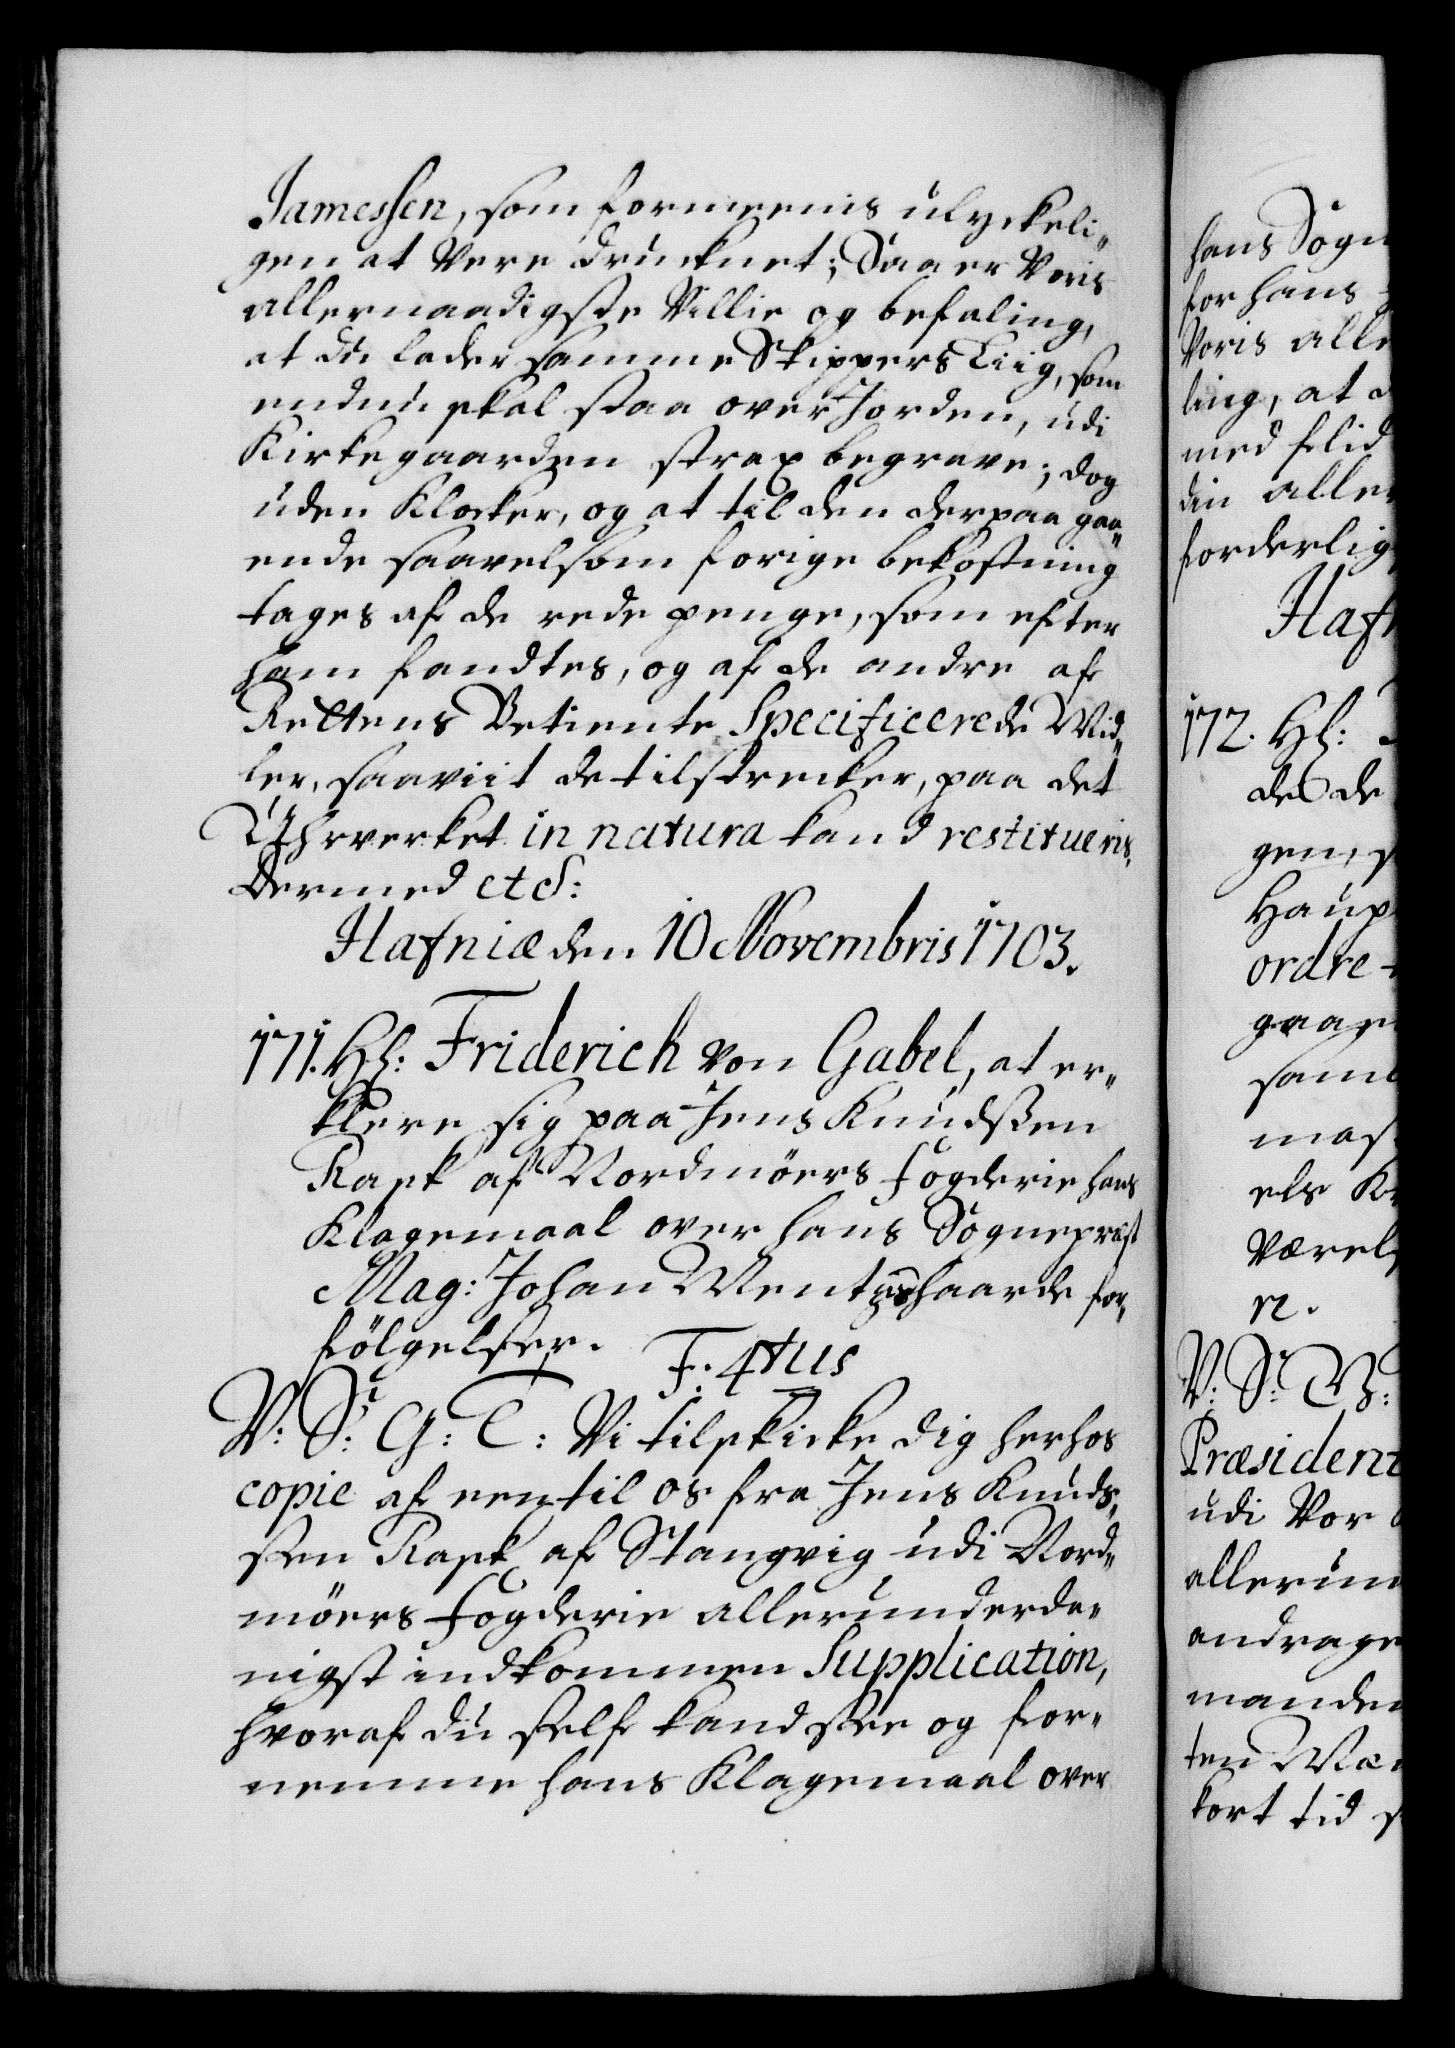 Jamessen, som formeenis ulyckeli„
gen at vere drucknet; Saa er Voris
allernaadigste Villie og befaling,
at du lader samme Skippers Liig, som
endnu skal staa over Jorden, udi
Kirkegaarden strax begrave; dog
uden Klocker, og at til den derpaa gaa„
ende saavelsom forige bekostning
tages af de rede penge, som efter
ham fandtes, og af de andre af
Rettens Betiente Specificerede Mid„
ler, saaviit de tilstrecker, paa det
Uhrverket in natura kand restitueris,
Dermed etc:
Hafniæ den 10 Novembris 1703.
171. Hh: Friderich von Gabel, at er„
klere sig paa Jens Knudssen
Rask af Nordmöers Fogderie hans
Klagemaal over hans Sognepræst
Mag: Johan Mentzes haarde for„
fölgelser.
F. 4tus
V: Sr: G: T: Vi tilskicke dig herhos
copie af een til os fra Jens Knuds„
sen Rask af Stangvig udi Nord„
möers Fogderie allerunderda„
nigst indkommen Supplication,
hvoraf du self kand see og for„
nemme hans Klagemaal over
hans Sogn
for hans
Voris alle
ling, at d
med flid
din aller
forderlig
Hafn
172. Hh:
des de
gen, s
Haup
ordre
gaar
sam
mas
els K
værel
n.
V: Sr:
Præsident
udi Vor
allerun
andrage
manden
ten Mæ
kort tid s